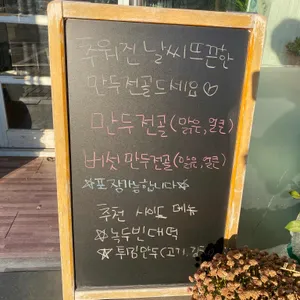 추워진 날씨 뜨끈한
만두전골 드세요♡
만두전골(맑은,얼큰)
버섯만두전골(맑은,얼큰)
☆포장가능합니다☆
추천 사이드 메뉴
☆녹두빈대떡
☆튀김만두(고기,